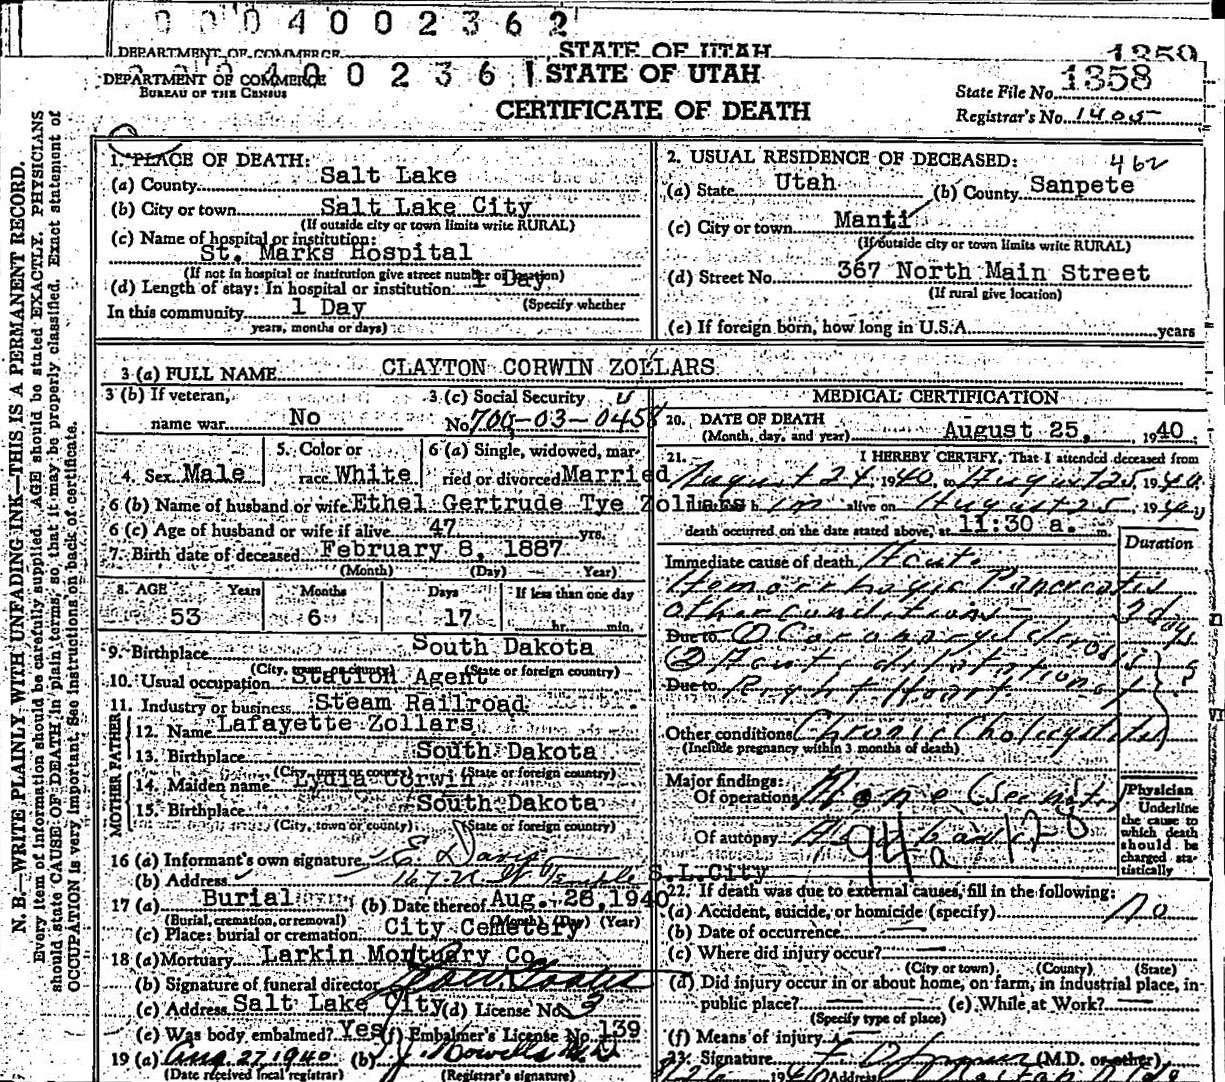 0 0 0 4 0 0 2 3 6 2
DEPARTMENT OF COMMERCE STATE OF UTAH 1359
DEPARTMENT OF COMMERCE 4 0 0 2 3 6 1 STATE OF UTAH
BUREAU OF THE CENSUS
CERTIFICATE OF DEATH
State File No. 1358
Registrar's No. 1405
N. B.—WRITE PLAINLY WITH UNFADING INK—THIS IS A PERMANENT RECORD.
Every item of information should be carefully supplied. AGE should be stated EXACTLY. PHYSICIANS
should state CAUSE OF DEATH in plain terms, so that it may be properly classified. Exact statement of
OCCUPATION is very important. See instructions on back of certificate.
1. PLACE OF DEATH:
(a) County Salt Lake
(b) City or town Salt Lake City
(If outside city or town limits write RURAL)
(c) Name of hospital or institution:
St. Marks Hospital
(If not in hospital or institution give street number or location)
(d) Length of stay: In hospital or institution 1 Day
(Specify whether
In this community 1 Day
years, months or days)
2. USUAL RESIDENCE OF DECEASED: 462
(a) State Utah (b) County Sanpete
(c) City or town Manti
(If outside city or town limits write RURAL)
(d) Street No. 367 North Main Street
(If rural give location)
(e) If foreign born, how long in U.S.A. years
3 (a) FULL NAME CLAYTON CORWIN ZOLLARS
3 (b) If veteran,
name war No
3 (c) Social Security
No. 700-03-0458
4. Sex Male
5. Color or
race White
6 (a) Single, widowed, mar-
ried or divorced Married
6 (b) Name of husband or wife Ethel Gertrude Tye Zollars
6 (c) Age of husband or wife if alive 47 yrs.
7. Birth date of deceased February 8, 1887
(Month) (Day) Year)
8. AGE Years Months Days If less than one day
53 6 17 hr. min.
9. Birthplace South Dakota
(City, town, or county) (State or foreign country)
10. Usual occupation Station Agent
11. Industry or business Steam Railroad
FATHER
12. Name Lafayette Zollars
13. Birthplace South Dakota
(City, town or county) (State or foreign country)
MOTHER
14. Maiden name Lydia Corwin
15. Birthplace South Dakota
(City, town or county) (State or foreign country)
16 (a) Informant's own signature E Davis
(b) Address S.L.City
17 (a) Burial (b) Date thereof Aug. 28, 1940
(Burial, cremation, or removal) (Month) (Day) (Year)
(c) Place: burial or cremation City Cemetery
18 (a) Mortuary Larkin Mortuary Co.
(b) Signature of funeral director
(c) Address Salt Lake City (d) License No. 3
(e) Was body embalmed? Yes (f) Embalmer's License No. 139
19 (a) Aug 27, 1940 (b)
(Date received local registrar) (Registrar's signature)
MEDICAL CERTIFICATION
20. DATE OF DEATH
(Month, day, and year) August 25, 1940
21. I HEREBY CERTIFY, That I attended deceased from
August 24, 1940, to August 25, 1940
him alive on August 25, 1940
death occurred on the date stated above, at 11:30 a. m.
Duration
Immediate cause of death Acute
Hemorrhagic Pancreatitis
Other conditions— 2 days
Due to ① Coronary sclerosis
② Acute dilatation of
Due to Right Heart
Other conditions Chronic Cholecystitis
(Include pregnancy within 3 months of death)
Major findings:
Of operations None
Of autopsy
94a 128
Physician
Underline
the cause to
which death
should be
charged sta-
tistically
22. If death was due to external causes, fill in the following:
(a) Accident, suicide, or homicide (specify) No
(b) Date of occurrence —
(c) Where did injury occur? —
(City or town) (County) (State)
(d) Did injury occur in or about home, on farm, in industrial place, in
public place? — (e) While at Work? —
(Specify type of place)
(f) Means of injury
23. Signature (M.D. or other)
Address